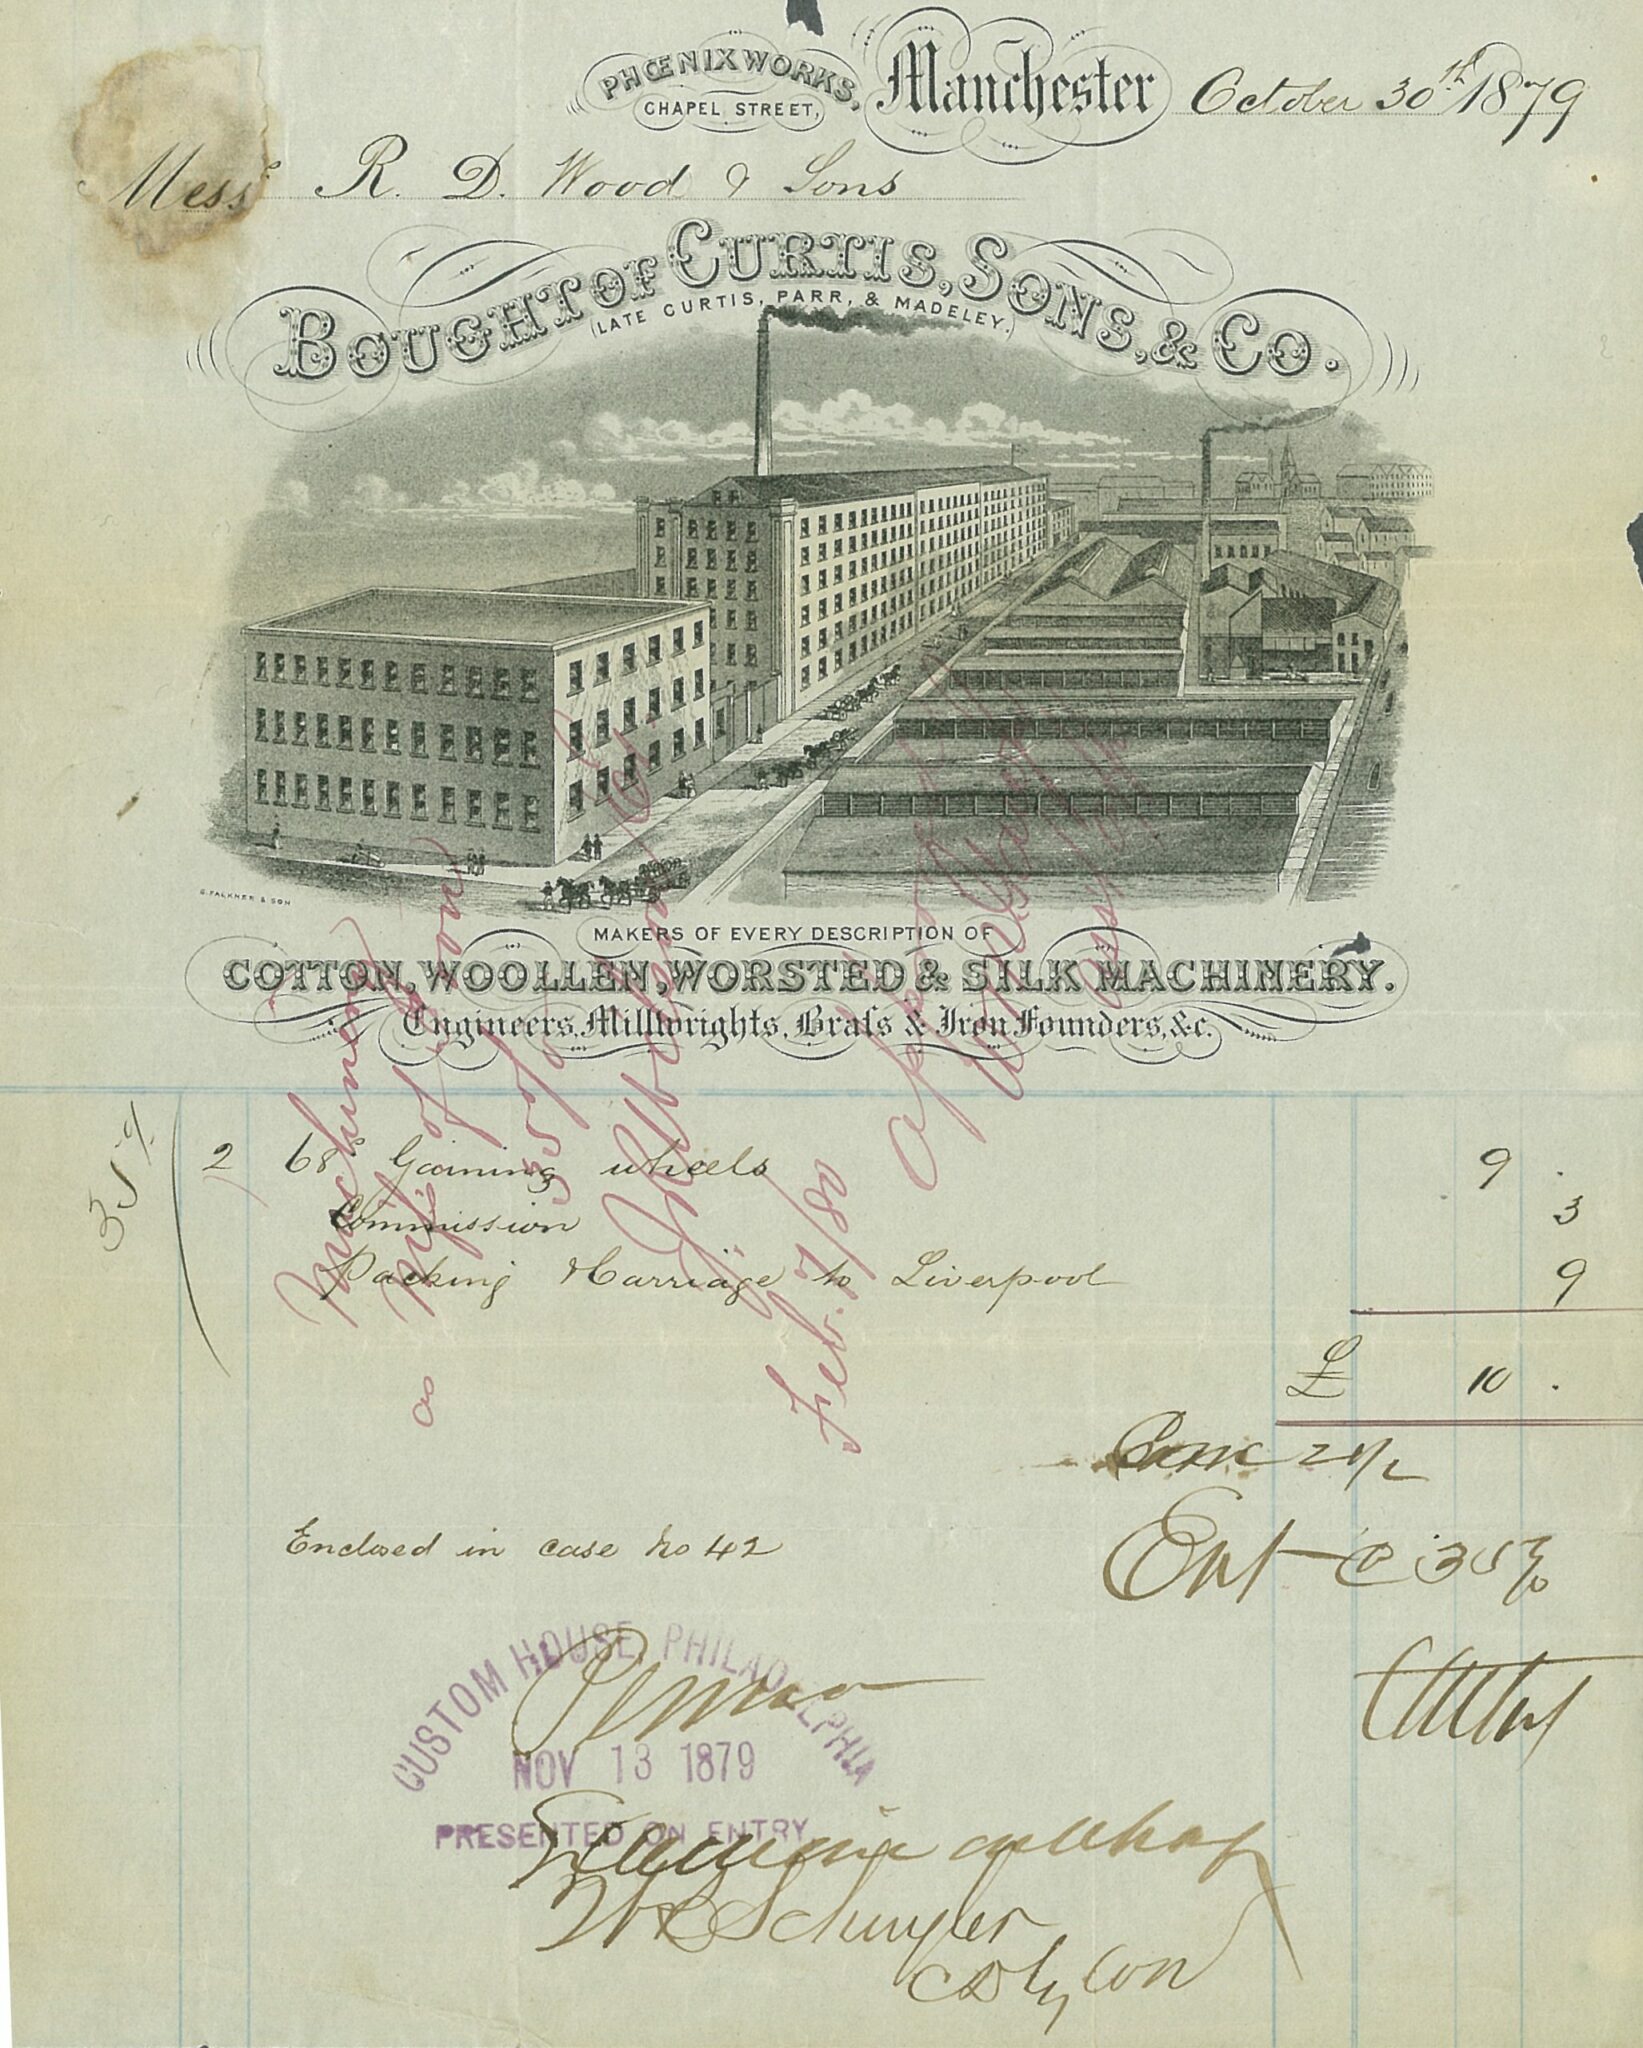 PHŒNIX WORKS,
CHAPEL STREET,
Manchester October 30th 1879
Messrs R. D. Wood & Sons
BOUGHT OF CURTIS, SONS, & CO.
(LATE CURTIS, PARR, & MADELEY.)
G. FALKNER & SON
MAKERS OF EVERY DESCRIPTION OF
COTTON, WOOLLEN, WORSTED & SILK MACHINERY.
Engineers, Millwrights, Braſs & Iron Founders, &c.
35%
2 68s wheels 9 .
Commission 3
Packing & Carriage to Liverpool 9
£ 10 .
Machinery
as mf of Iron
35%
Feb. 7/80
2 1/2
Enclosed in case No 42
Ent @ 35%
CUSTOM HOUSE, PHILADELPHIA
NOV 13 1879
PRESENTED ON ENTRY
Schuyler